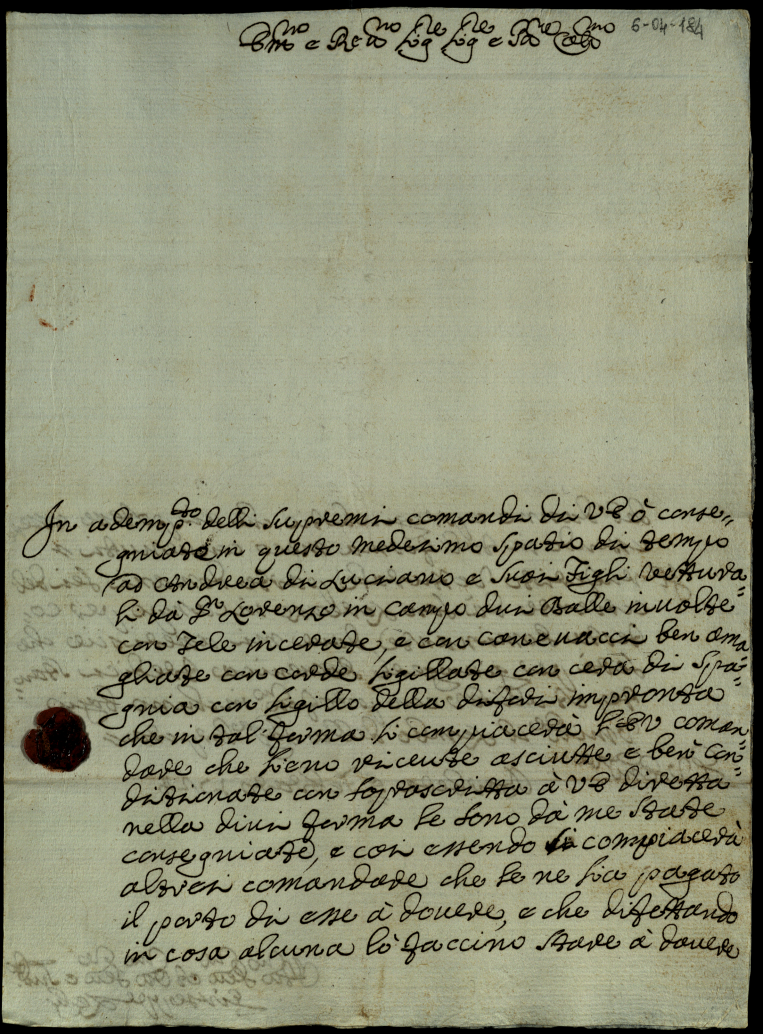 Em.no e Re.mo Sig.re Sig.re e P.ne Col.mo
6-04-184
In ademp.to delli Supremi comandi di VE ò conse„
gniate in questo medesimo Spatio di tempo
ad Andrea di Luciano e Suoi Figli Vettura„
li da S. Lorenzo in Campo dui Balle involte
con Tele incerate, e con canevacci ben ama„
gliate con corde sigillate con cera di Spa„
gnia con sigillo della di impronta
che in tal forma si compiacerà l'EV coman„
dare che sieno riceute asciutte e ben con„
ditionate con soprascritta à VE diretta
nella forma le sono dà me State
consegniate, e così essendo si compiacerà
altresi comandare che le ne sia pagato
il porto di esse à dovere, e che difettando
in cosa alcuna lò faccino Stare à dovere